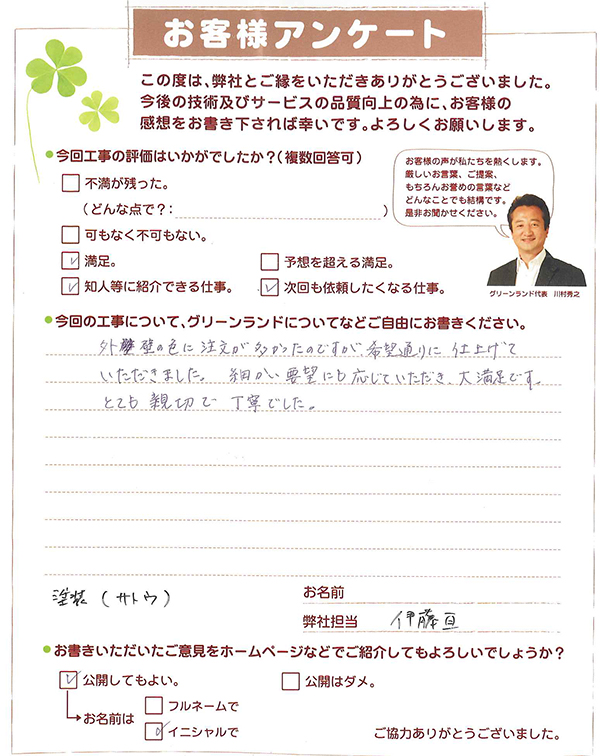 お客様アンケート
この度は、弊社とご縁をいただきありがとうございました。
今後の技術及びサービスの品質向上の為に、お客様の
感想をお書き下されば幸いです。よろしくお願いします。
●今回工事の評価はいかがでしたか？（複数回答可）
お客様の声が私たちを熱くします。
厳しいお言葉、ご提案、
もちろんお誉めの言葉など
どんなことでも結構です。
是非お聞かせください。
不満が残った。
（どんな点で？：　）
可もなく不可もない。
満足。
予想を超える満足。
知人等に紹介できる仕事。
次回も依頼したくなる仕事。
グリーンランド代表　川村秀之
●今回の工事について、グリーンランドについてなどご自由にお書きください。
外壁の色に注文が多かったのですが、希望通りに仕上げて
いただきました。細かい要望にも応じていただき、大満足です。
とても親切で丁寧でした。
塗装（サトウ）
お名前
弊社担当　伊藤亘
●お書きいただいたご意見をホームページなどでご紹介してもよろしいでしょうか？
公開してもよい。
公開はダメ。
お名前は
フルネームで
イニシャルで
ご協力ありがとうございました。